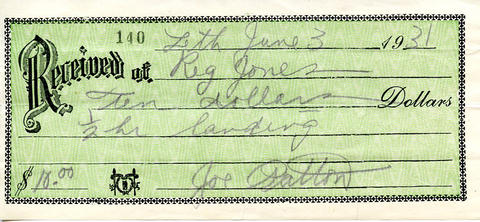 140 Leth June 3 1931
Received of Reg Jones
Ten dollars Dollars
1/2 hr landing
$10.00 Joe Patton